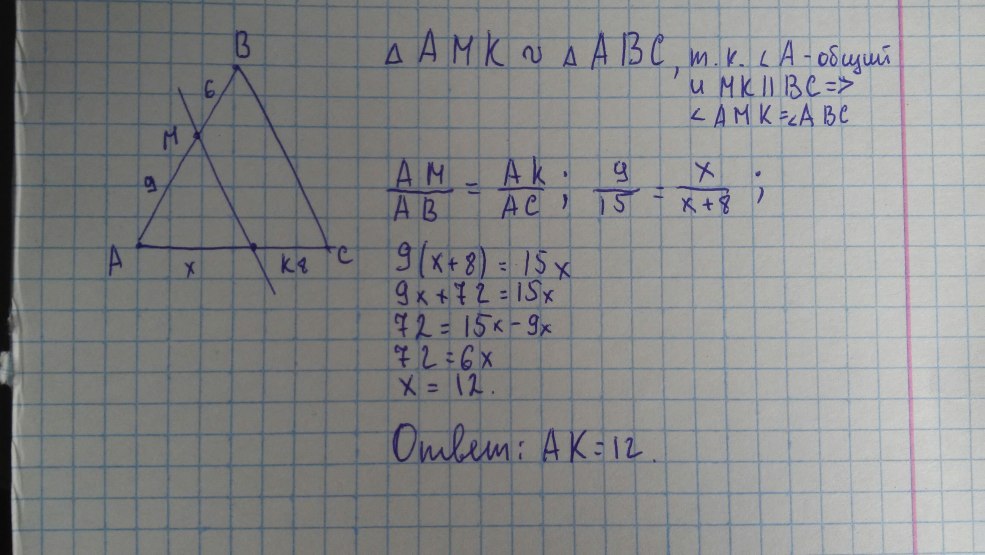 B
6
M
9
A
x
K 8
C
△ AMK ∾ △ ABC, т.к. ∠A - общий
и MK || BC =>
∠AMK = ∠ABC
AM/AB = AK/AC; 9/15 = x/x+8;
9(x+8) = 15x
9x+72 = 15x
72 = 15x - 9x
72 = 6x
x = 12.
Ответ: AK = 12.